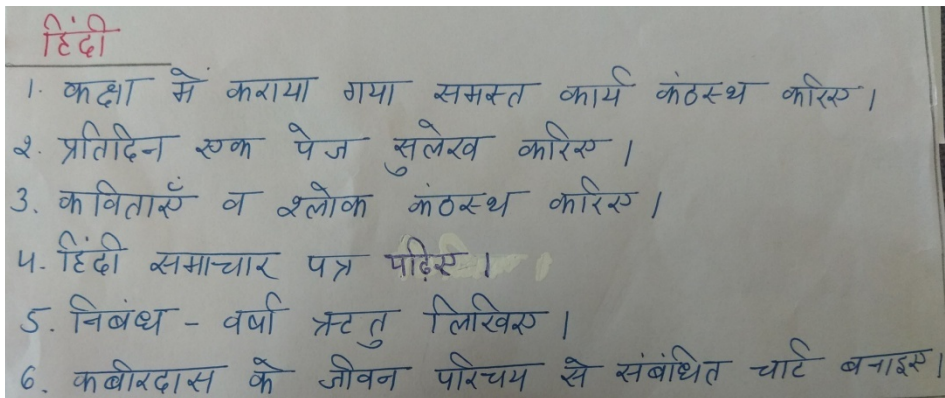 हिंदी
1. कक्षा में कराया गया समस्त कार्य कंठस्थ करिए।
2. प्रतिदिन एक पेज सुलेख करिए।
3. कविताएँ व श्लोक कंठस्थ करिए।
4. हिंदी समाचार पत्र पढ़िए।
5. निबंध - वर्षा ऋतु लिखिए।
6. कबीरदास के जीवन परिचय से संबंधित चार्ट बनाइए।